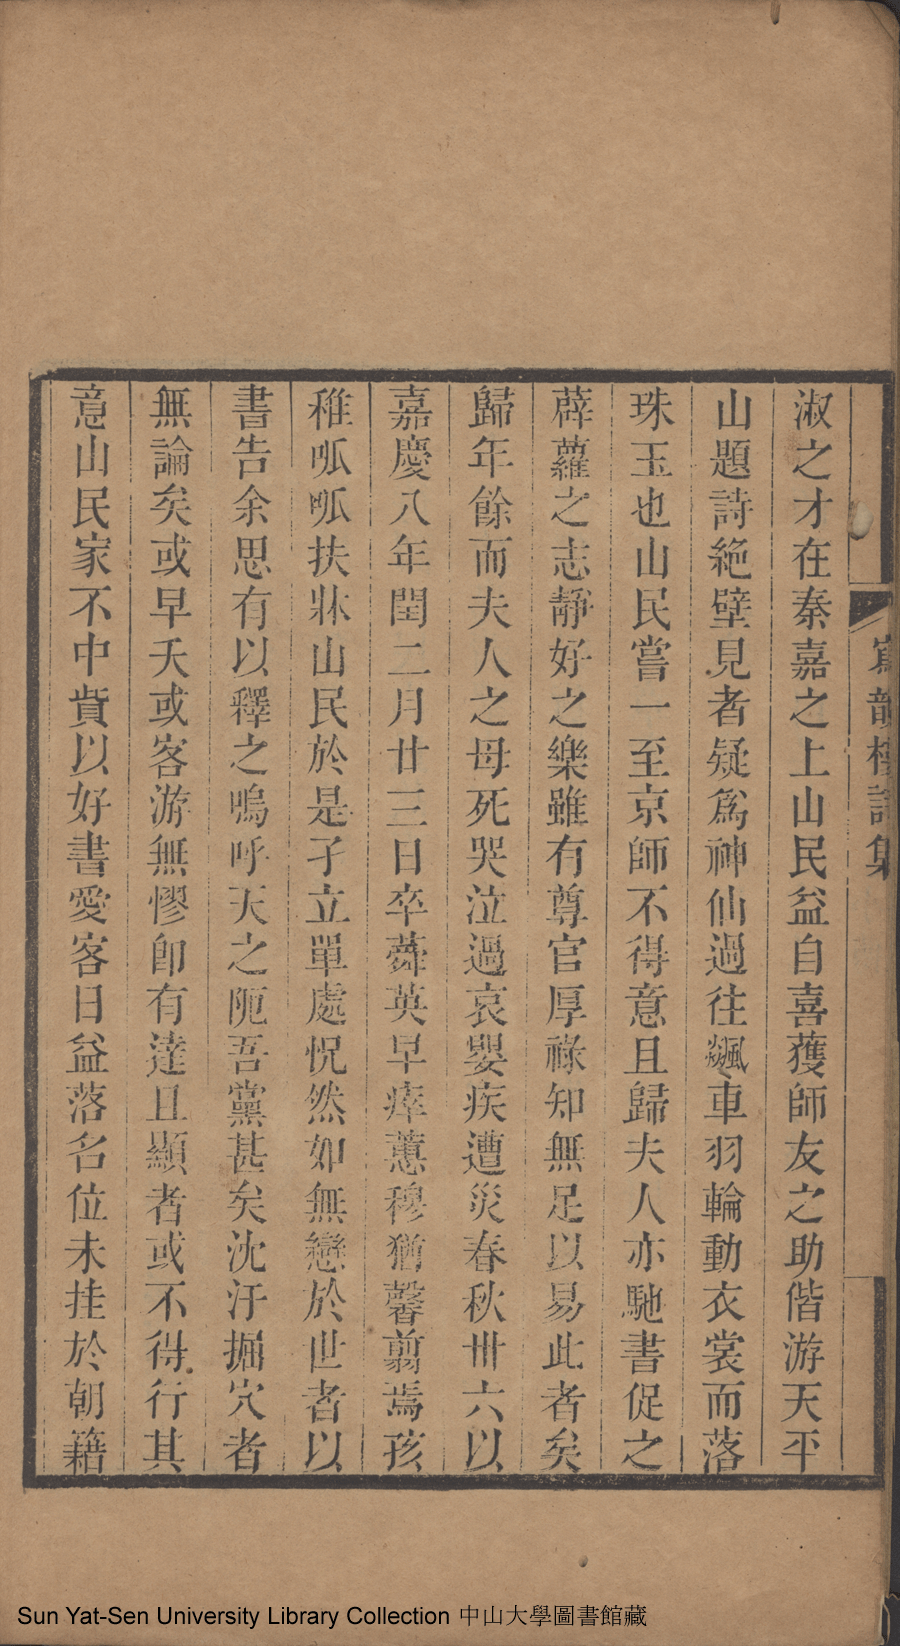 淑之才在秦嘉之上山民益自喜獲師友之助偕游天平
山題詩絶壁見者疑爲神仙過往飇車羽輪動衣裳而落
珠玉也山民嘗一至京師不得意且歸夫人亦馳書促之
薜蘿之志靜好之樂雖有尊官厚祿知無足以易此者矣
歸年餘而夫人之母死哭泣過哀嬰疾遭災春秋卅六以
嘉慶八年閏二月廿三日卒蕣英早瘁蕙穆猶馨翦焉孩
稚呱呱扶牀山民於是孑立單處怳然如無戀於世者以
書告余思有以釋之嗚呼天之阨吾黨甚矣沈汙掘穴者
無論矣或早夭或客游無憀卽有達且顯者或不得行其
意山民家不中貲以好書愛客日益落名位未挂於朝籍
寫韻樓詩集
Sun Yat-Sen University Library Collection 中山大學圖書館藏